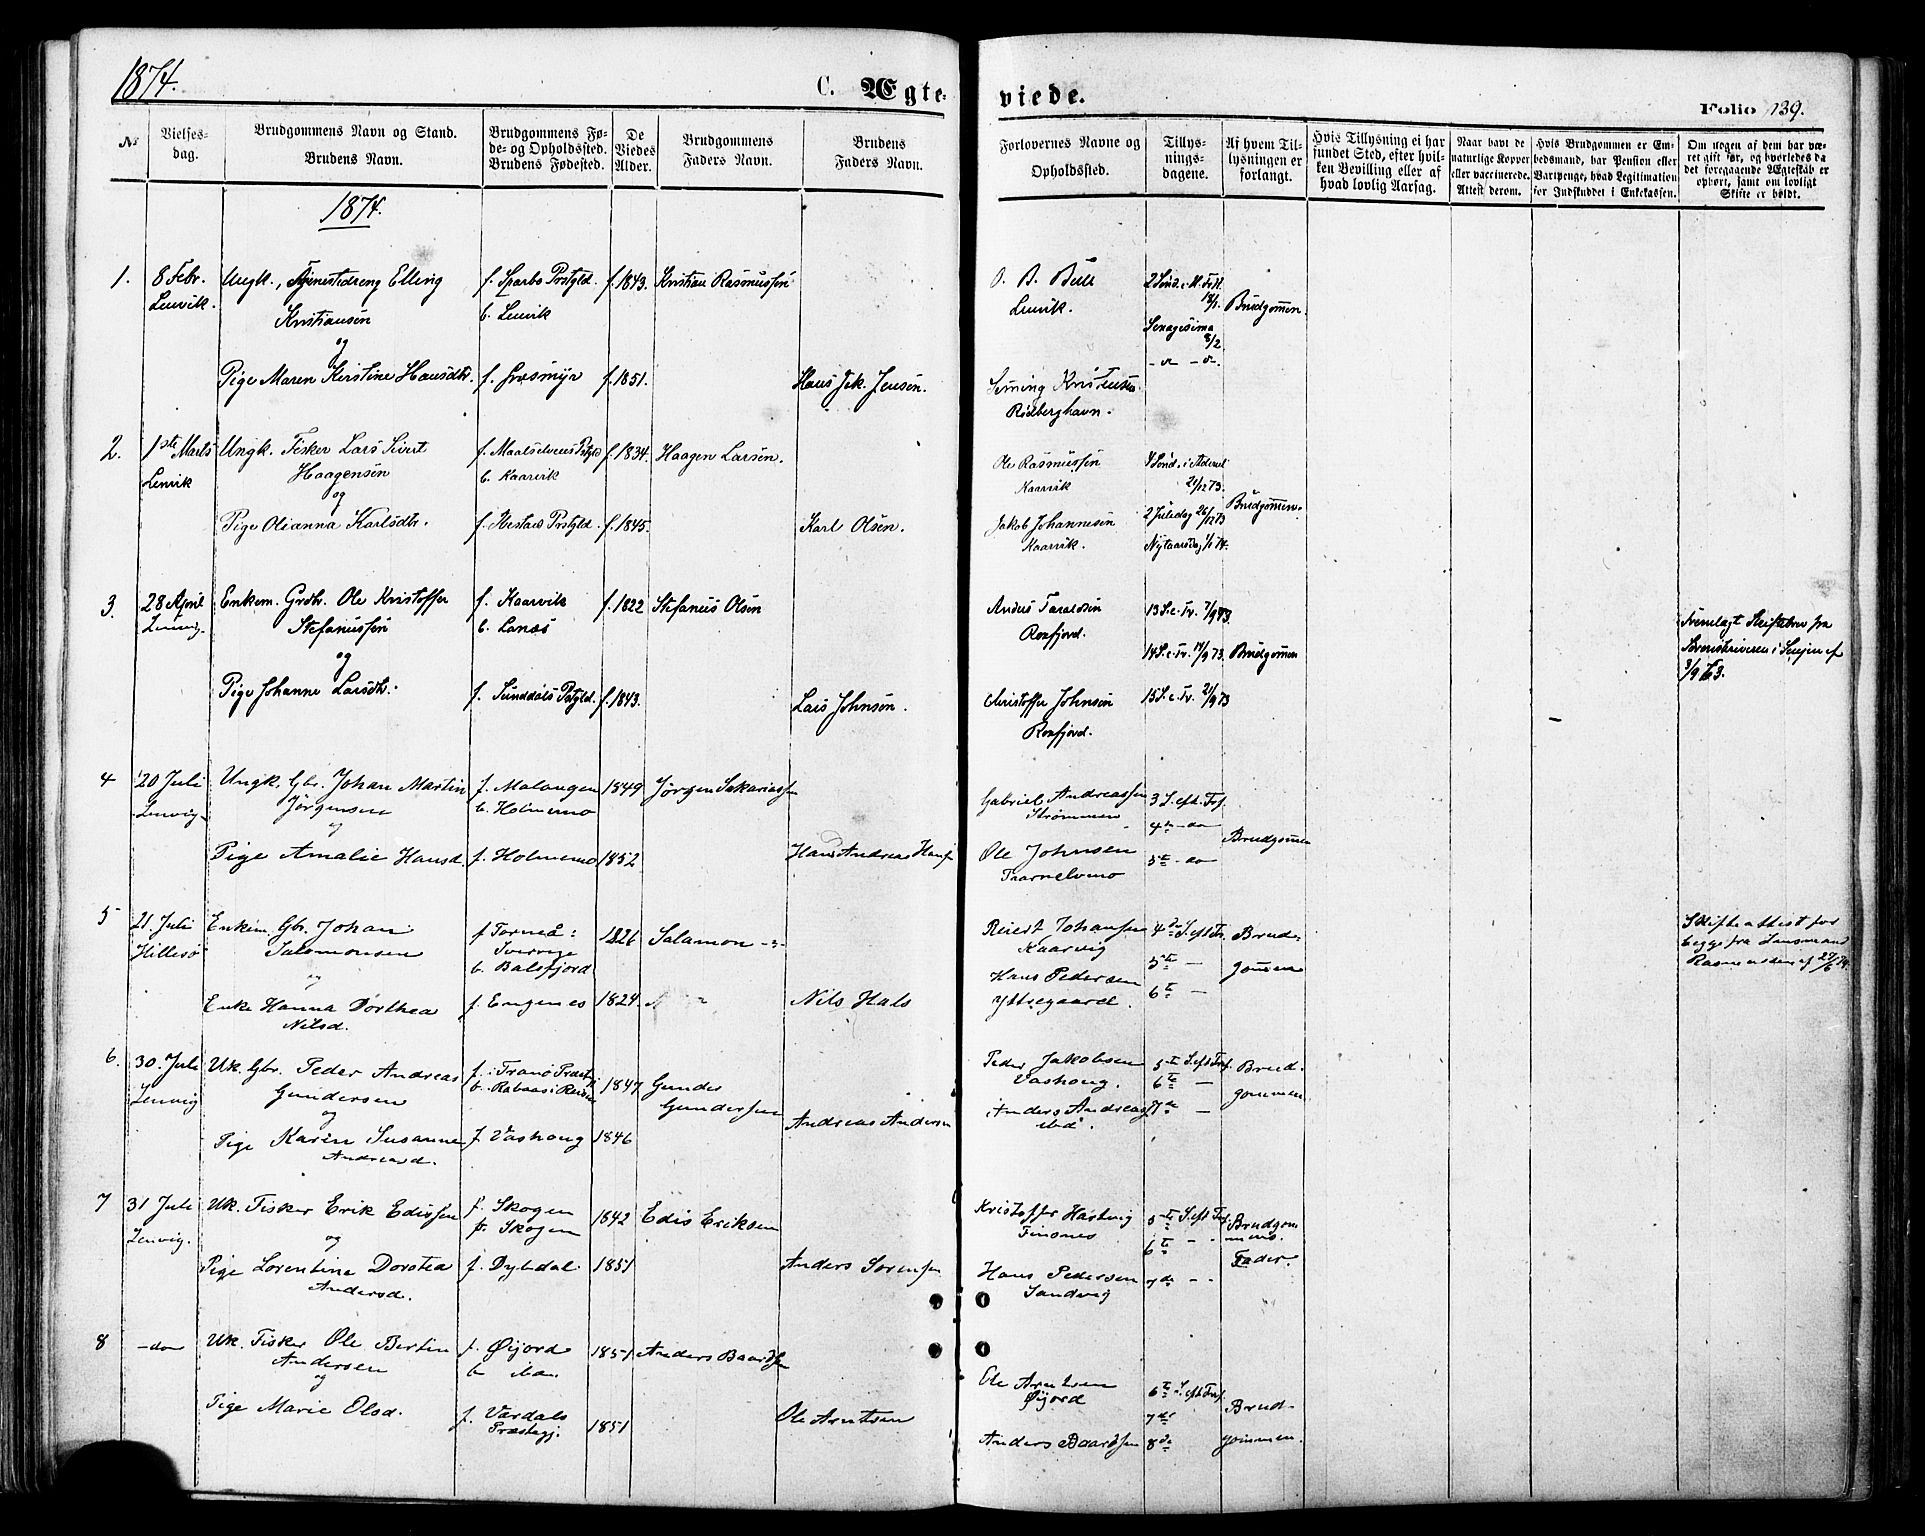 1874.
C. Ægte-
viede.
Folio 139.
№
Vielses-
dag.
Brudgommens Navn og Stand.
Brudens Navn.
Brudgommens Fø-
de- og Opholdssted.
Brudens Fødested.
De
Viedes
Alder.
Brudgommens
Faders Navn.
Brudens
Faders Navn.
Forlovernes Navne og
Opholdssted.
Tillys-
nings-
dagene.
Af hvem Til-
lysningen er
forlangt.
Hvis Tillysning ei har
fundet Sted, efter hvil-
ken Bevilling eller af
hvad lovlig Aarsag.
Naar havt de
naturlige Kopper
eller vaccinerede.
Attest derom.
Hvis Brudgommen er Em-
bedsmand, har Pension eller
Vartpenge, hvad Legitimation
for Indskuddet i Enkekassen.
Om nogen af dem har væ-
ret gift før, og hvorledes da
det foregaaende Ægteskab er
ophørt, samt om lovligt
Skifte er holdt.
1874.
1.
8 Febr.
Lenvik.
Ungk., Tjenestedreng Elling
Kristiansen
og
Pige Maren Kirstine Hansdtr.
f. Sparbo Prstgld.
b. Lenvik
f. Græsmyr
f. 1843.
f. 1851.
Kristian Rasmussen
Hans Jak. Jensen.
O. B. Bull
Lenvik.
Kristensen
Rødberghavn.
2 Sønd. e. H. Tr. K.
18/1.
Sexagesima
8/2
Brudgommen.
2.
1ste Marts
Lenvik
Ungk. Fisker Lars Sivert
Haagensen
og
Pige Olianna Karlsdtr.
f. Maalselvens Prstgld
b. Kaarvik
f. Ibestads Prstgld.
f. 1834.
f. 1845.
Haagen Larsen.
Karl Olsen.
Ole Rasmussen
Kaarvik
Jakob Johannesen
Kaarvik.
4 Sønd. i Advent
21/12 73.
2 Juledag 26/12 73
Nytaarsdag 1/1 74.
Brudgommen.
3.
28 April
Lenvig.
Enkem. Grdbr. Ole Kristoffer
Stefanussen
og
Pige Johanne Larsdtr.
f. Kaarvik
b. Lanæs
f. Sunddals Prstgld.
f. 1822
f. 1843.
Stefanus Olsen
Lars Johnsen.
Anders Taraldsen
Rosfjord.
Christoffer Johnsen
Rosfjord.
13 S. e. Tr. 7/9 73.
14 S. e. Tr. 14/9 73.
15 S. e. Tr. 21/9 73
Brudgommen
Fremlagt Skiftebrev fra
Sorenskriveren i Senjen af
3/9 63.
4
20 Juli
Lenvig.
Ungk. Gbr. Johan Martin
Jørgensen
og
Pige Amalie Hansd.
f. Malangen
b. Holmemo
f. Holmemo
1849
1852
Jørgen Sakariassen
Hans Andreas Hansen
Gabriel Andreassen
Strømmen
Ole Johnsen
Taarnelvmo
3 S. eft. Tref.
4de - do
5te - do
Brudgommen
5
21. Juli
Hillesø
Enkem. Gbr. Johan
Salomonsen
og
Enke Hanna Dorthea
Nilsd.
f Torneå:
Sverrige
b. Balsfjord
f. Engenes
1826
1824.
Salamon
Nils Hals
Reiert Johansen
Kaarvig
Hans Pedersen
Yttregaard.
4de S. eft Tr.
5te -
6te -
Brud-
gommen
Skifteattest for
begge fra Lensmand
Rasmussen af 27/6 74.
6.
30. Juli
Lenvig
Uk. Gbr. Peder Andreas
Gundersen
og
Pige Karen Susanne
Andreasd.
f. i Tranø Præstegj.
f. Vashoug
1847
1846
Gunder
Gundersen
Andreas Andersen
Peder Jakobsen
Vashoug.
Anders Andreas
ibd.
5te S. eft Tref.
6te -
7de -
Brud-
gommen
7
31 Juli
Lenvig.
Uk. Fisker Erik Edissen
og
Pige Lorentine Dorotea
Andersd.
f. Skogen
b. Skogen
f. Dybdal.
1842
1851
Edis Eriksen
Anders Sørensen
Kristoffer Hartvig
Finsnes
Hans Pedersen
Sandvig
5te S. eft Tref.
6te - -
7de - -
Brudgom
mens.
Fader.
8
- do -
Uk. Fisker Ole Bertin
Andersen
og
Pige Marie Olsd.
f. Øijord
b ibd.
f. Værdals
Præstegj.
1851
1851
Anders Baardsen
Ole Arntsen
Ole Arntsen
Øijord
Anders Baardsen
6te S. eft Tref.
7de
8de
Brud-
gommen.